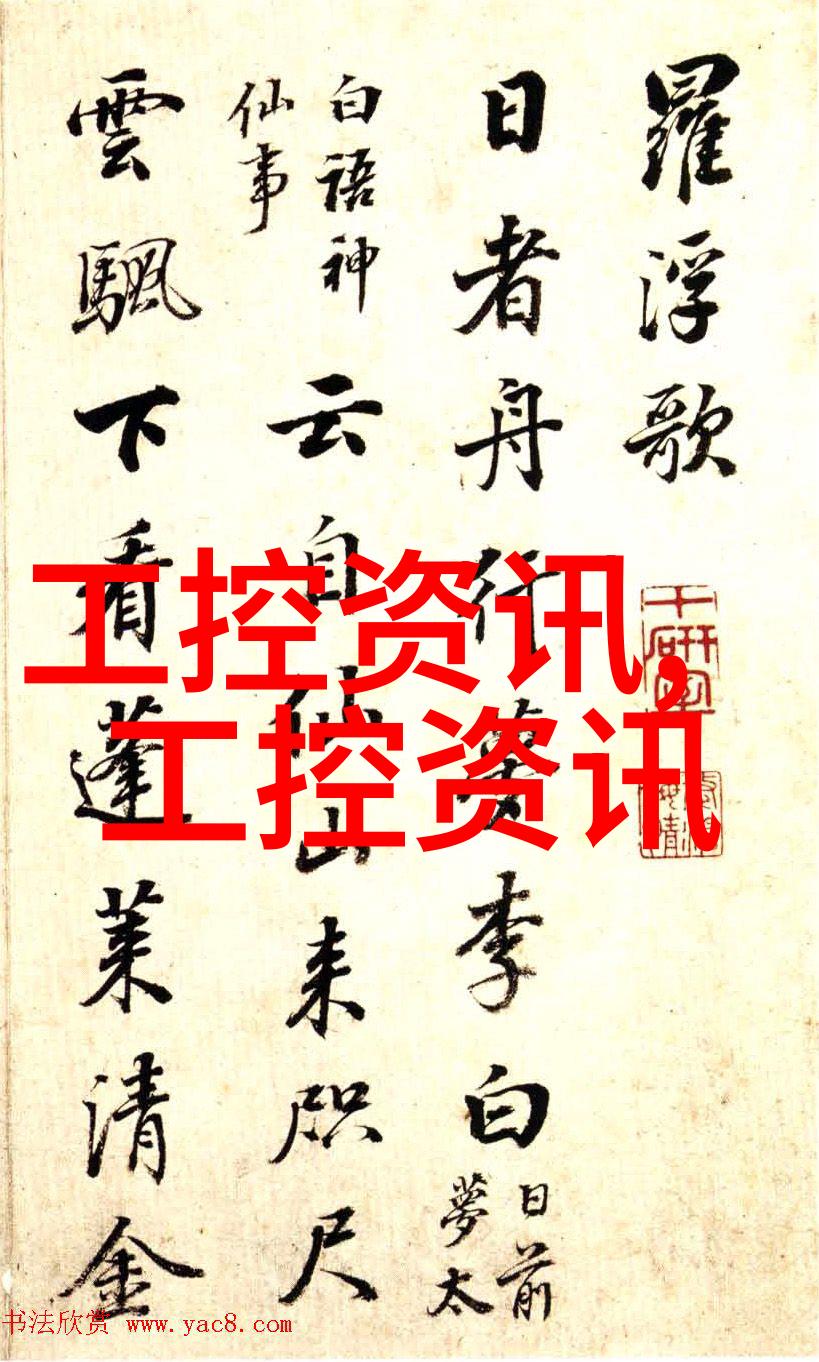 羅浮歌
日者舟行夢李白
日前
夢太
白語神
仙事
云自仙山来咫尺
雲颿下看蓬莱清金
工控资讯,
工控资讯
书法欣赏 www.yac8.com